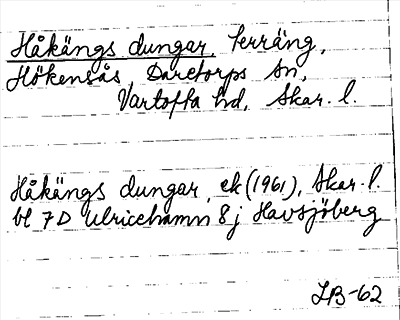 Håkängs dungar, Terräng,
Hökensås, Daretorps sn,
Vartofta hd, Skar. l.
Håkängs dungar, ek (1961), Skar. l.
bl 7D Ulricehamn 8j Havsjöberg
LB-62